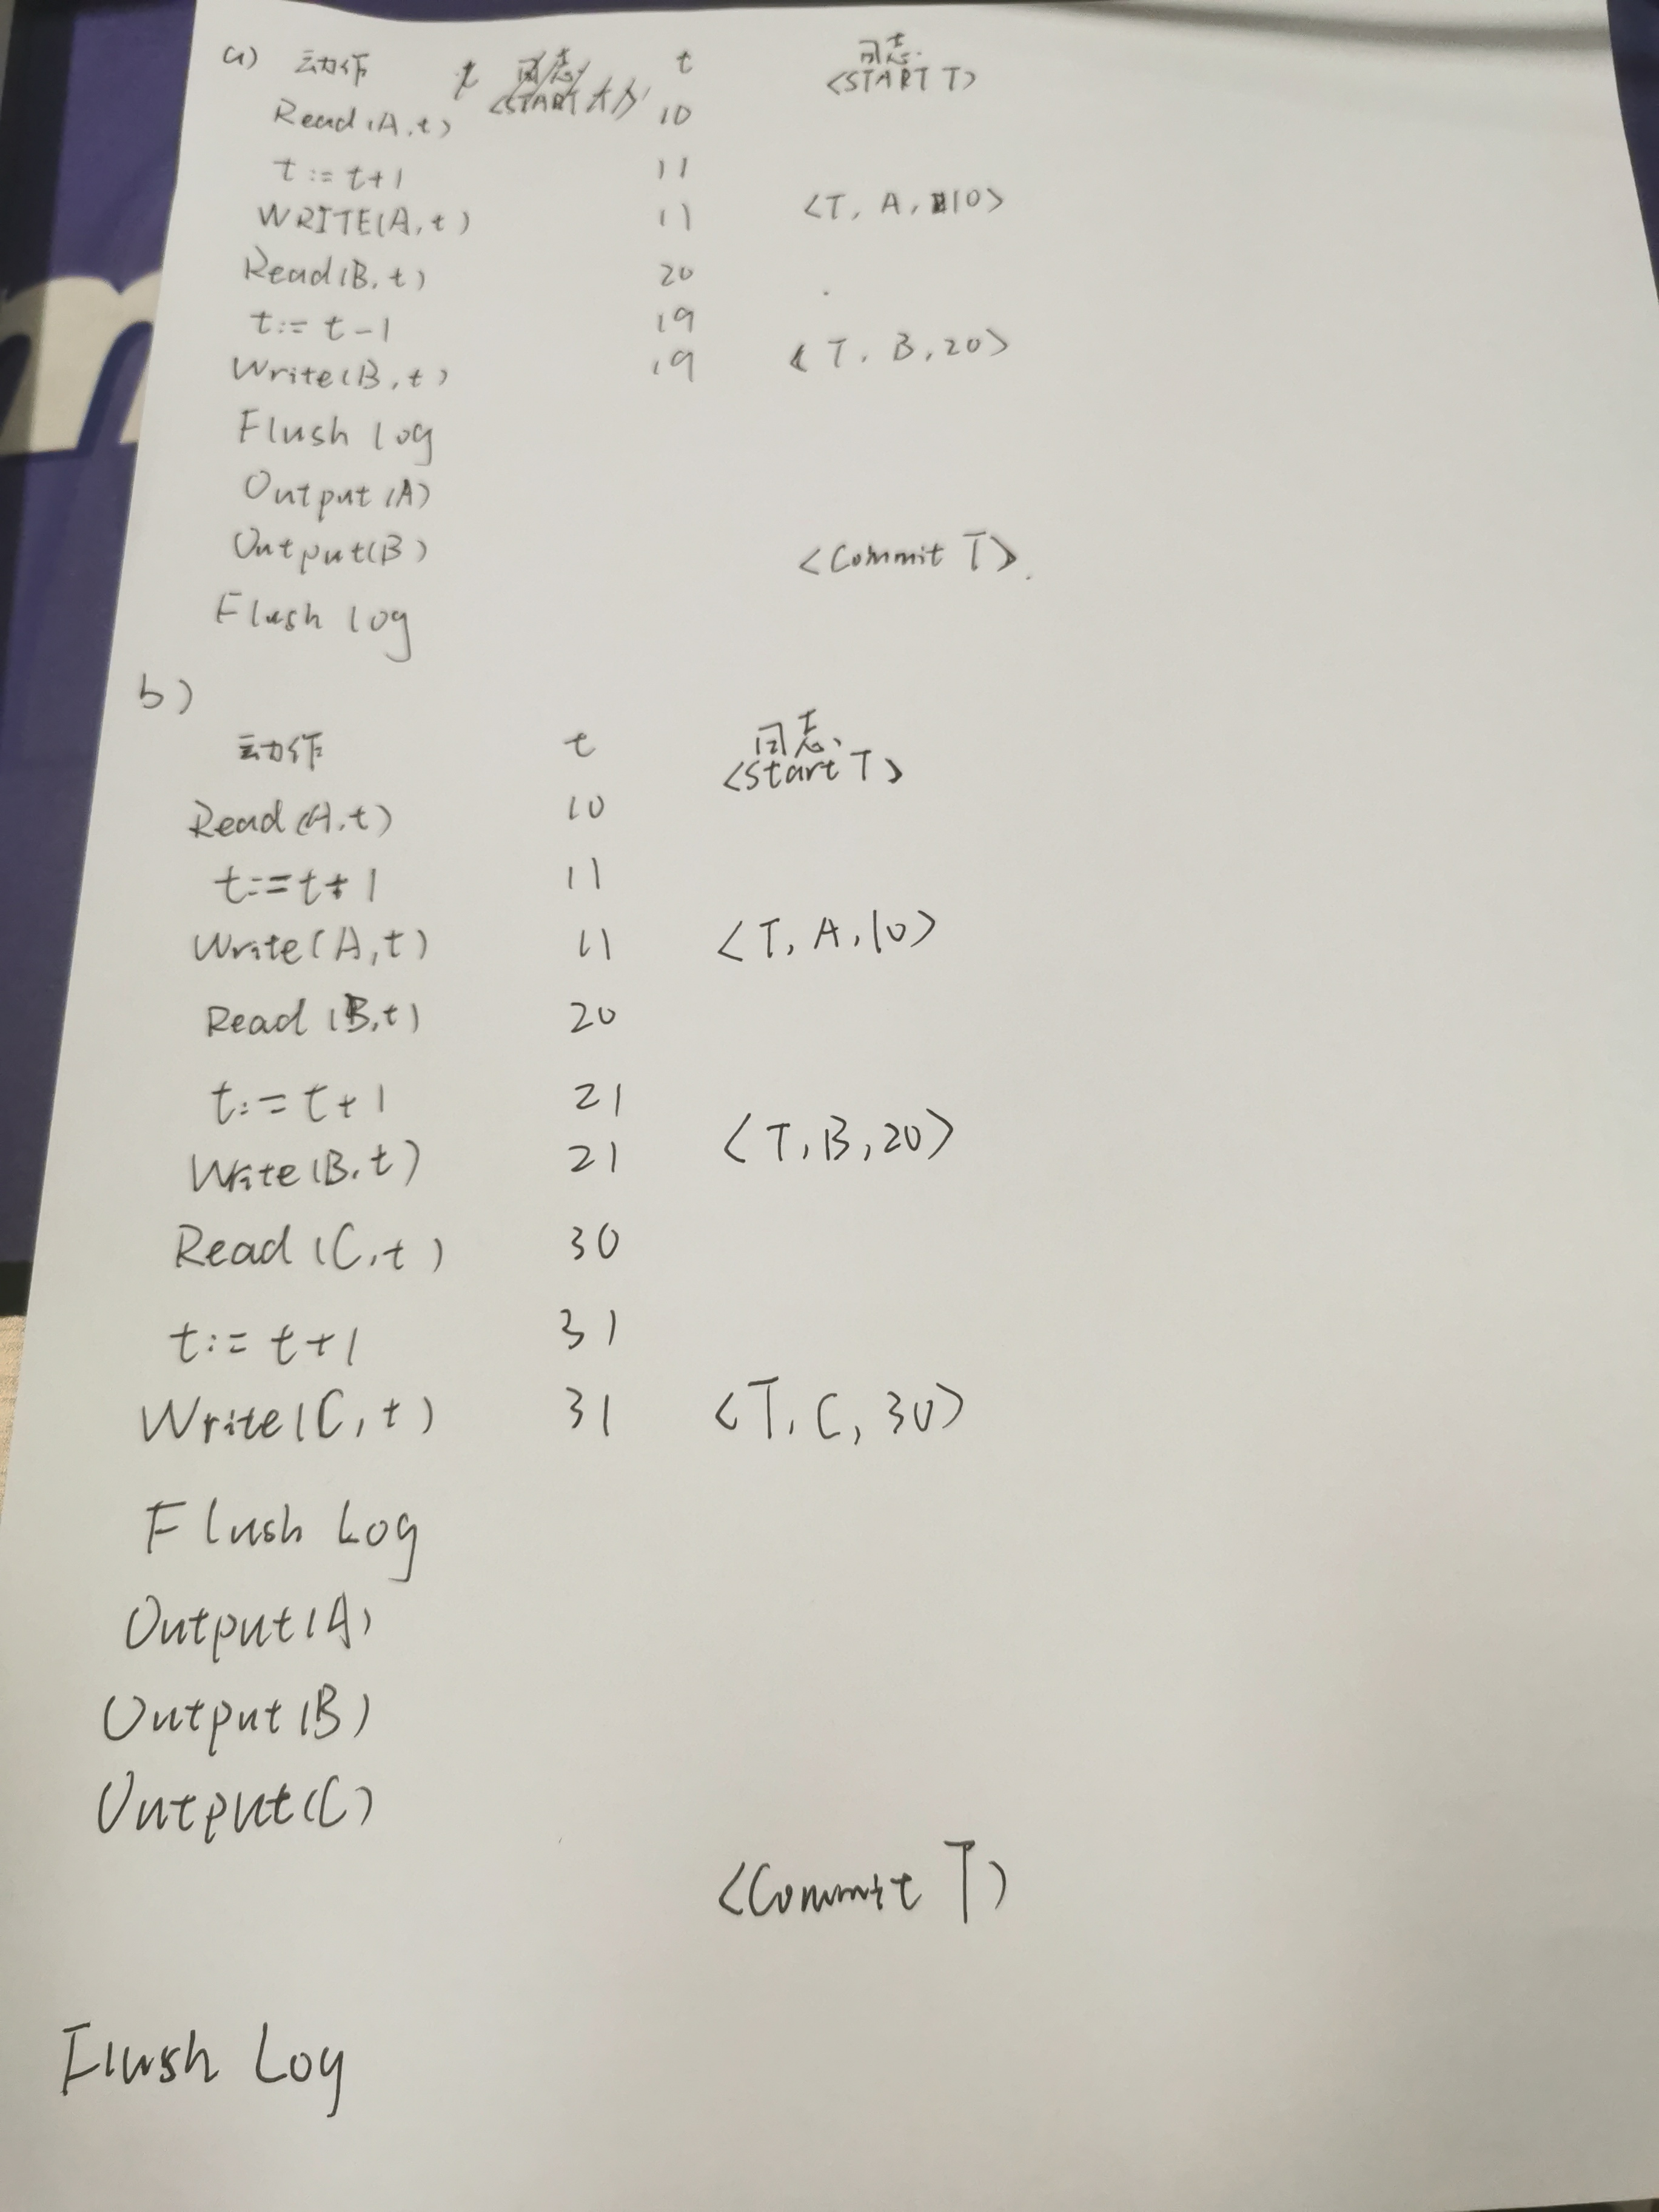 a) 动作 t 日志 t 日志
<START T>
Read(A,t) 10
t:=t+1 11
WRITE(A,t) 11 <T, A, 10>
Read(B,t) 20
t:=t-1 19
Write(B,t) 19 <T, B, 20>
Flush log
Output(A)
Output(B) <Commit T>
Flush log
b)
动作 t 日志
<Start T>
Read(A,t) 10
t:=t+1 11
Write(A,t) 11 <T, A, 10>
Read(B,t) 20
t:=t+1 21
Write(B,t) 21 <T, B, 20>
Read(C,t) 30
t:=t+1 31
Write(C,t) 31 <T, C, 30>
Flush Log
Output(A)
Output(B)
Output(C)
<Commit T>
Flush Log